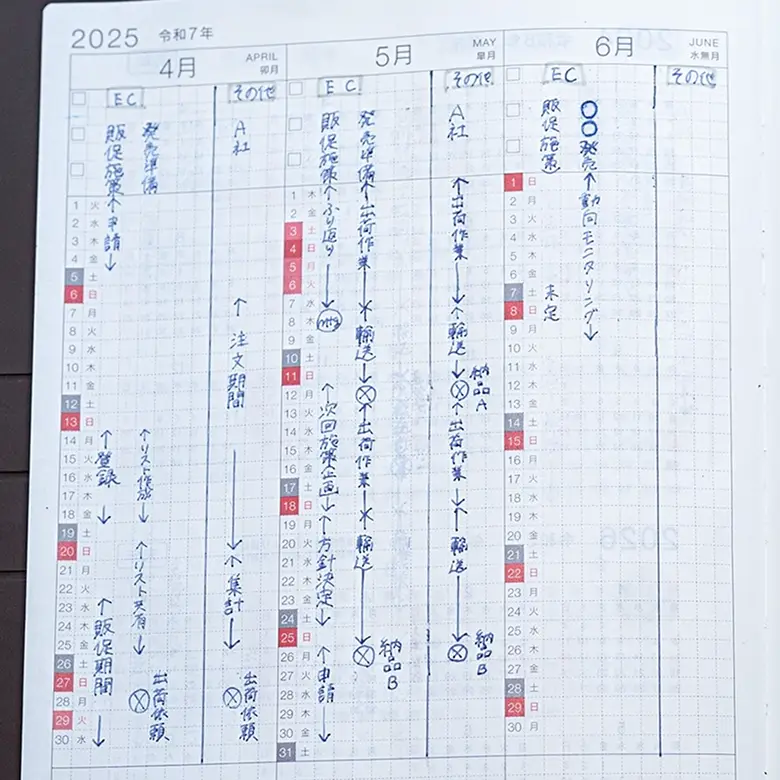 2025 令和7年
4月 APRIL 卯月
EC その他
販促施策 発売準備 A社
1 火
2 水
3 木
4 金
5 土
6 日
7 月
8 火
9 水
10 木
11 金
12 土
13 日
14 月
15 火
16 水
17 木
18 金
19 土
20 日
21 月
22 火
23 水
24 木
25 金
26 土
27 日
28 月
29 火
30 水
↑申請↓
↑登録↓
↑販促期間↓
↑リスト作成↓
↑リスト共有↓
⊗出荷依頼
↑注文期間↓
↑集計↓
⊗出荷依頼
5月 MAY 皐月
EC その他
販促施策 発売準備 A社
1 木
2 金
3 土
4 日
5 月
6 火
7 水
8 木
9 金
10 土
11 日
12 月
13 火
14 水
15 木
16 金
17 土
18 日
19 月
20 火
21 水
22 木
23 金
24 土
25 日
26 月
27 火
28 水
29 木
30 金
31 土
↑ふり返り↓
mtg
↑次回施策企画↓
↑方針決定↓
↑申請↓
↑出荷作業↓
↑輸送↓
⊗
↑出荷作業↓
↑輸送↓
⊗納品B
↑出荷作業↓
↑輸送↓
⊗納品A
↑出荷作業↓
↑輸送↓
⊗納品B
6月 JUNE 水無月
EC その他
販促施策 〇〇発売
1 日
2 月
3 火
4 水
5 木
6 金
7 土
8 日
9 月
10 火
11 水
12 木
13 金
14 土
15 日
16 月
17 火
18 水
19 木
20 金
21 土
22 日
23 月
24 火
25 水
26 木
27 金
28 土
29 日
30 月
未定
↑動向モニタリング↓